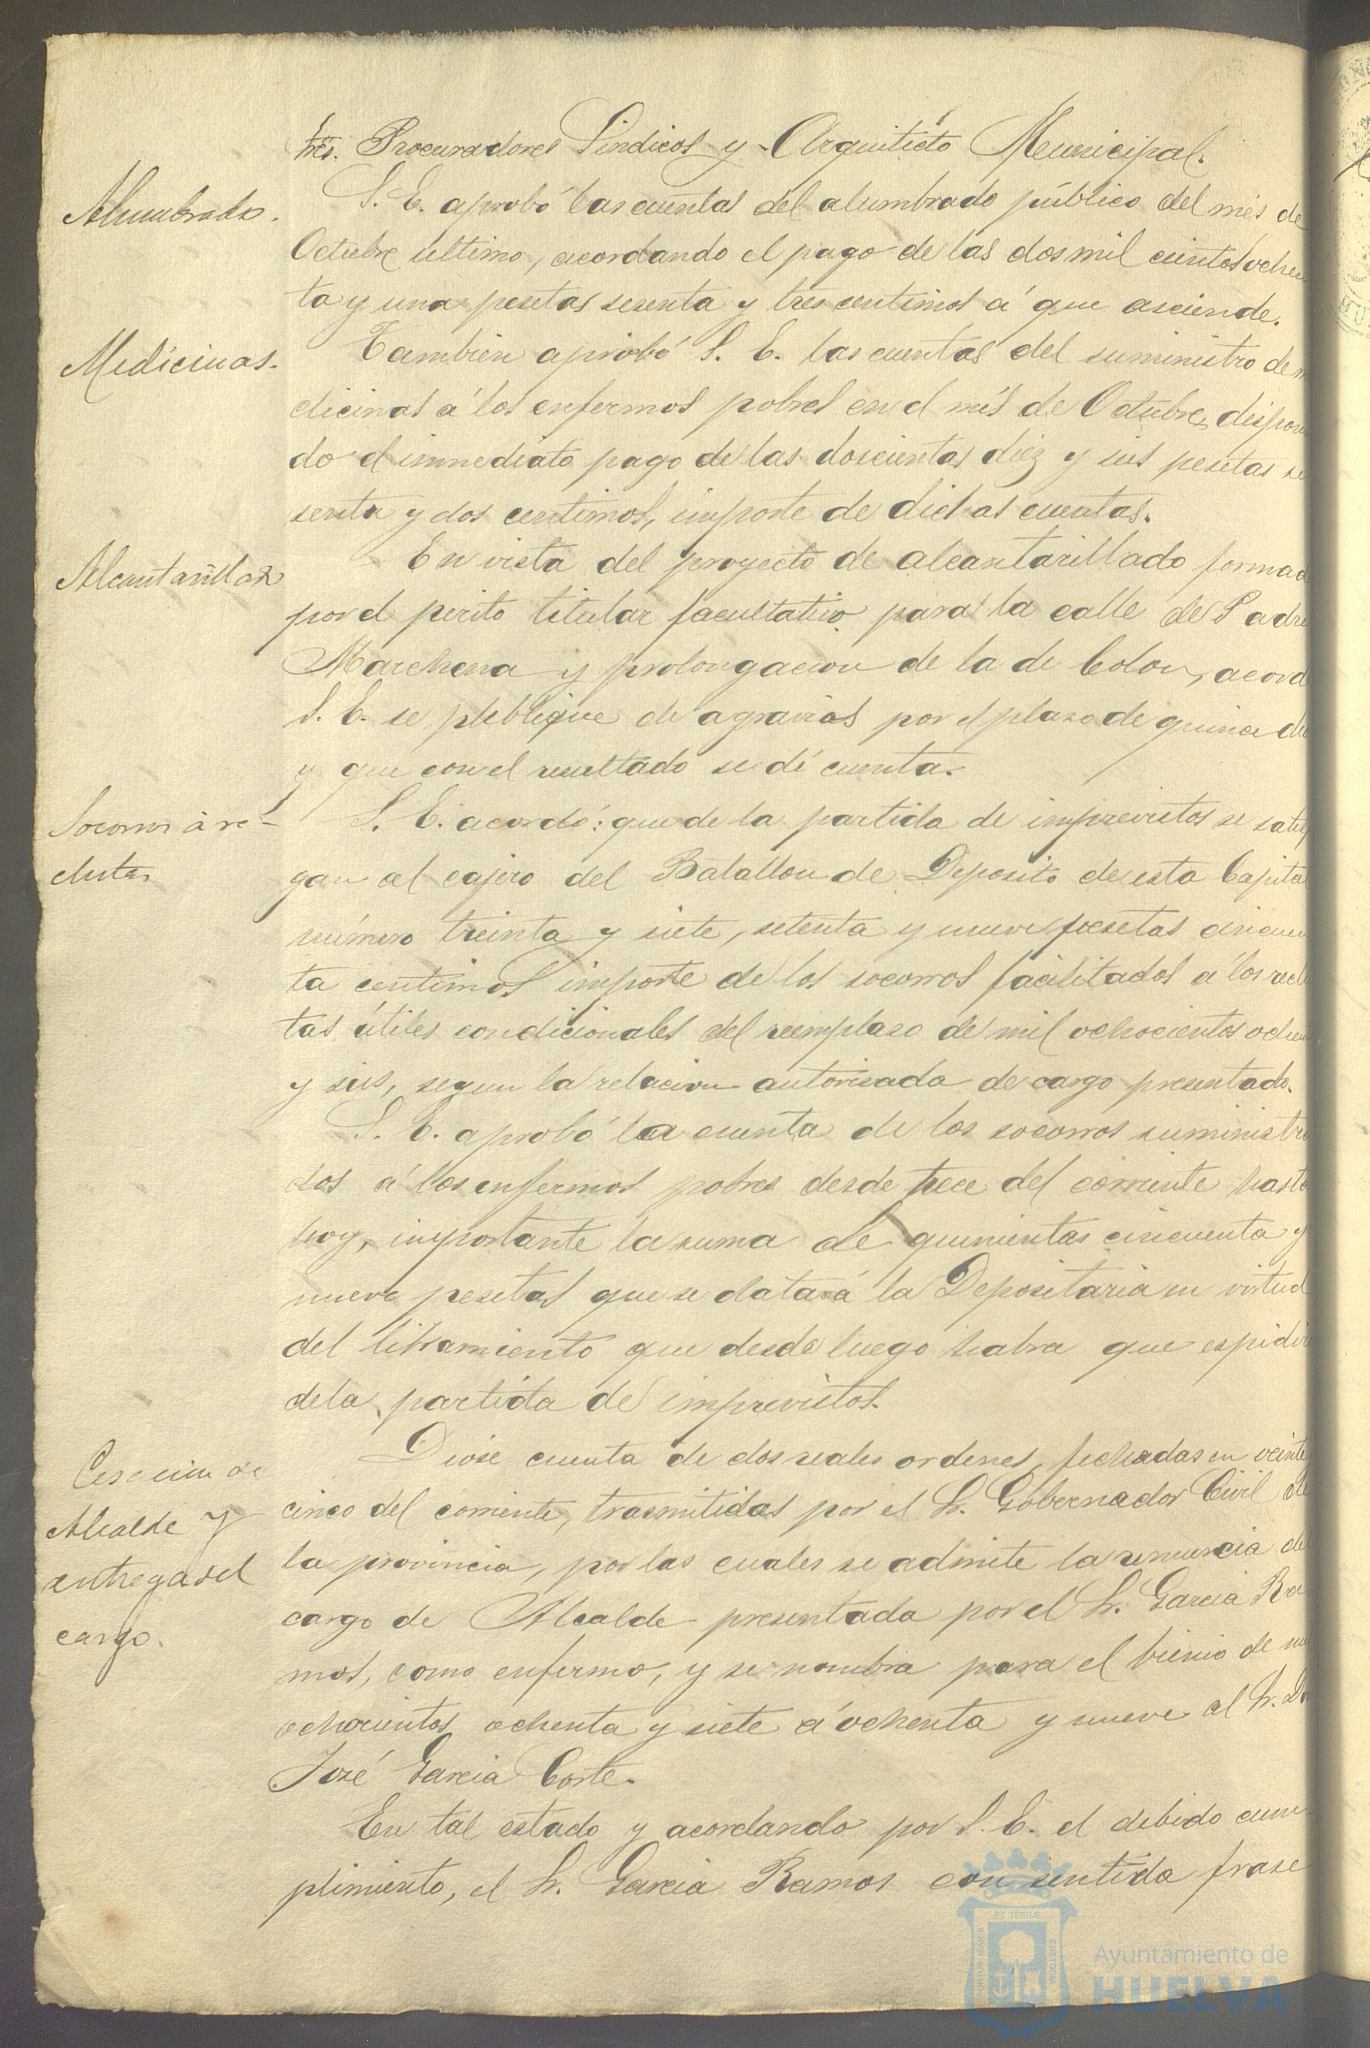 tres. Procuradores Sindicos y Arquitecto Municipal.
Alumbrado.
S. E. aprobó las cuentas del alumbrado público del més de
Octubre último, acordando el pago de las dos mil cientos ochen
ta y una pesetas sesenta y tres centimos á que asciende.
Medicinas.
Tambien aprobó S. E. las cuentas del suministro de me
dicinas á los enfermos pobres en el més de Octubre, disponien
do el inmediato pago de las doscientas diez y seis pesetas se
senta y dos centimos, importe de dichas cuentas.
Alcantarillas
En vista del proyecto de alcantarillado formad
por el perito titular facultativo para la calle de Padre
Marchena y prolongacion de la de Colon, acord
S. E. se publique de agravios por el plazo de quince di
y que con el resultado se dé cuenta.
Socorros á re-
clutas
S. E. acordó: que de la partida de imprevistos se satis
gan al cajero del Batallon de Deposito de esta Capital
número treinta y siete, setenta y nueve pesetas cincuen
ta centimos importe de los socorros facilitados á los reclu
tas útiles condicionales del reemplazo de mil ochocientos ochen
y seis, segun la relacion autorizada de cargo presentado.
S. E. aprobó la cuenta de los socorros suministra
dos á los enfermos pobres desde trece del corriente hasta
hoy, importante la suma de quinientas cincuenta y
nueve pesetas que se datará la Depositaria en virtud
del libramiento que desde luego habra que espidir
de la partida de imprevistos.
Cesacion de
Alcalde y
entrega del
cargo.
Diose cuenta de dos reales ordenes, fechadas en veinte
cinco del corriente, trasmitidas por el Sr. Gobernador Civil de
la provincia, por las cuales se admite la renuncia del
cargo de Alcalde presentada por el Sr. Garcia Ra
mos, como enfermo, y se nombra para el bienio de mil
ochocientos ochenta y siete á ochenta y nueve al Sr. Dn
José Garcia Corte.
En tal estado y acordando por S. E. el debido cum
plimiento, el Sr. Garcia Ramos con sentida frase
Ayuntamiento de
HUELVA